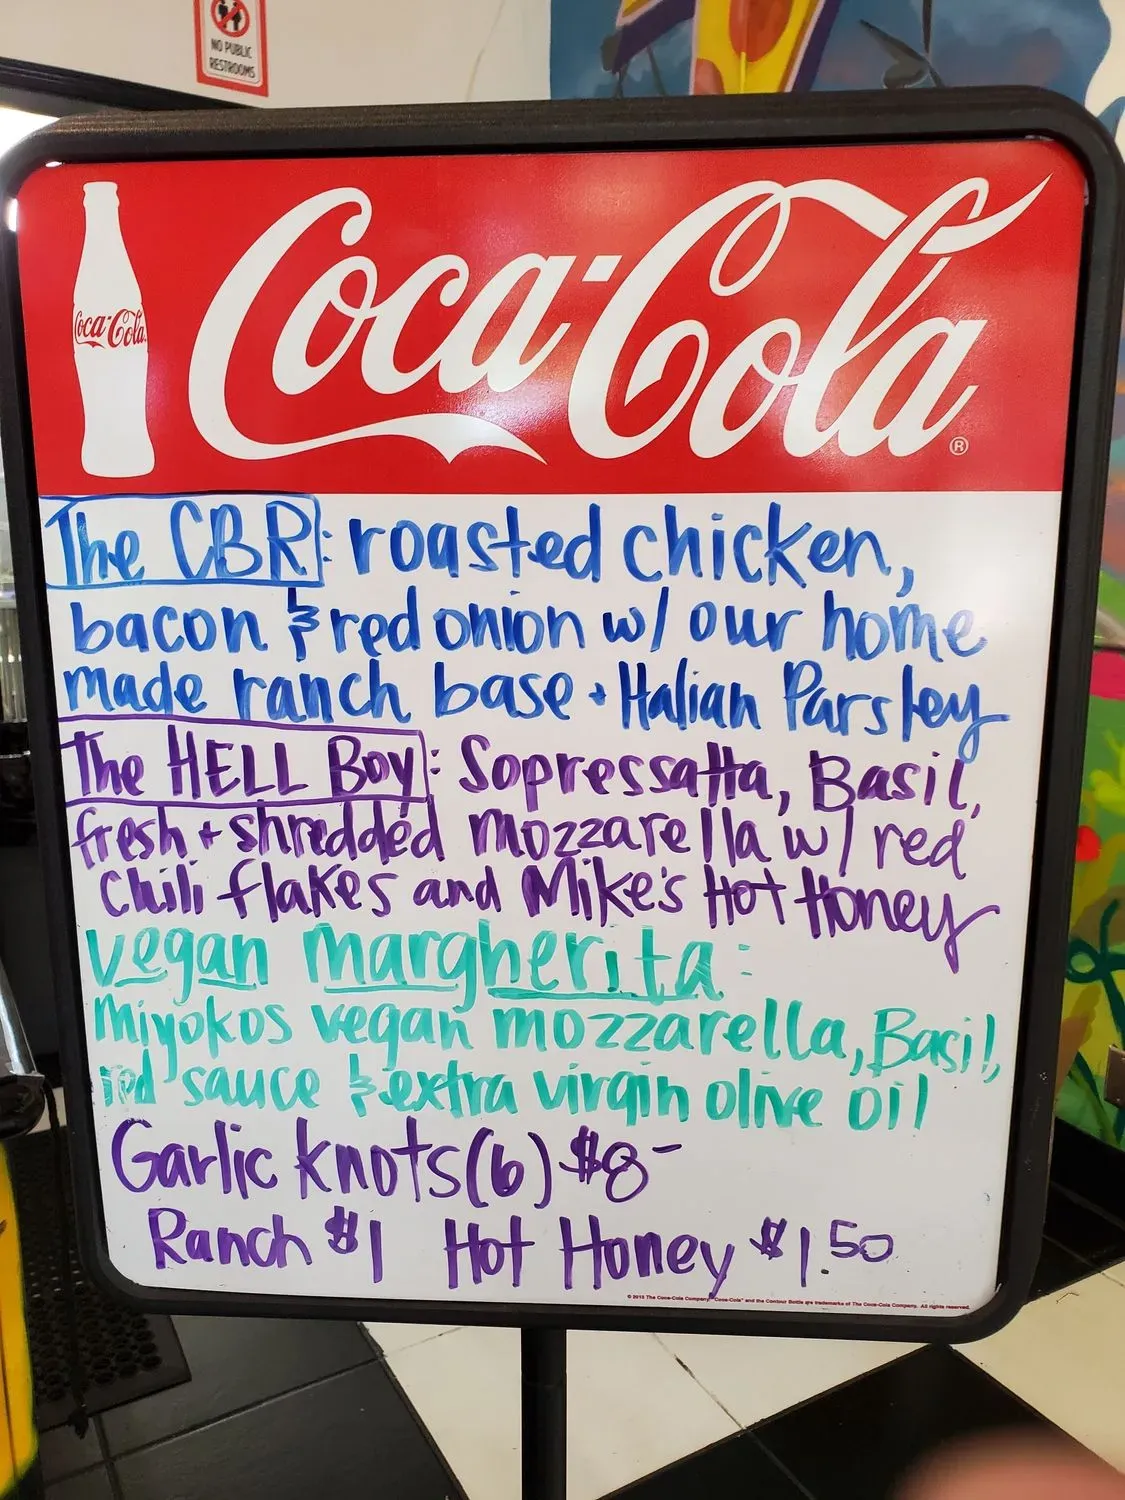 NO PUBLIC
RESTROOMS
Coca-Cola
Coca-Cola®
The CBR: roasted chicken,
bacon & red onion w/ our home
made ranch base + Italian Parsley
The HELL BOY: Sopressatta, Basil,
fresh + shredded mozzarella w/ red
Chili flakes and Mike's Hot Honey
vegan margherita:
Miyokos vegan mozzarella, Basil,
red sauce & extra virgin olive oil
Garlic knots (6) $8-
Ranch $1 Hot Honey $1.50
© 2015 The Coca-Cola Company. "Coca-Cola" and the Contour Bottle are trademarks of The Coca-Cola Company. All rights reserved.